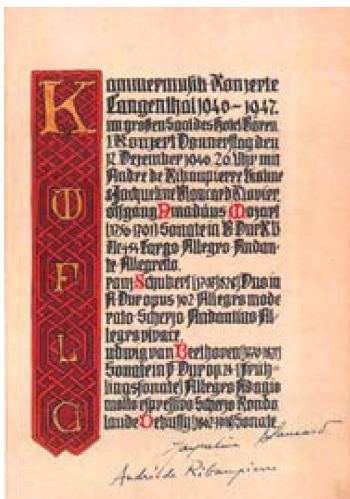 Kammermusik-Konzerte
Langenthal 1946 – 1947.
im großen Saal des Hotel Bären.
1. Konzert Donnerstag den
12. Dezember 1946 20 Uhr mit
Andre de Ribaupierre Violine
& Jacqueline Blancard Klavier
Wolfgang Amadäus Mozart
(1756-1791) Sonate in B Dur KV
454 Largo Allegro Andan-
te Allegretto.
Franz Schubert Duo in
A Dur opus 162 Allegro mode
rato-Scherzo Andantino Al-
legro vivace.
Ludwig van Beethoven (1770-1827)
Sonate in F Dur op. 24 (Früh-
lingssonate) Allegro Adagio
molto espressivo Scherzo Rondo
Claude Debussy (1862-1918) Sonate
Jacqueline Blancard
André de Ribaupierre